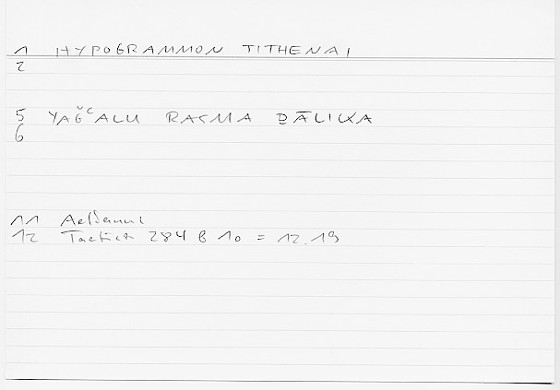 1 HYPOGRAMMON TITHENAI
2
5 YAǦʿALU RASMA DĀLIKA
6
11 Aelianus
12 Tactica 284 B 10 = 12.19